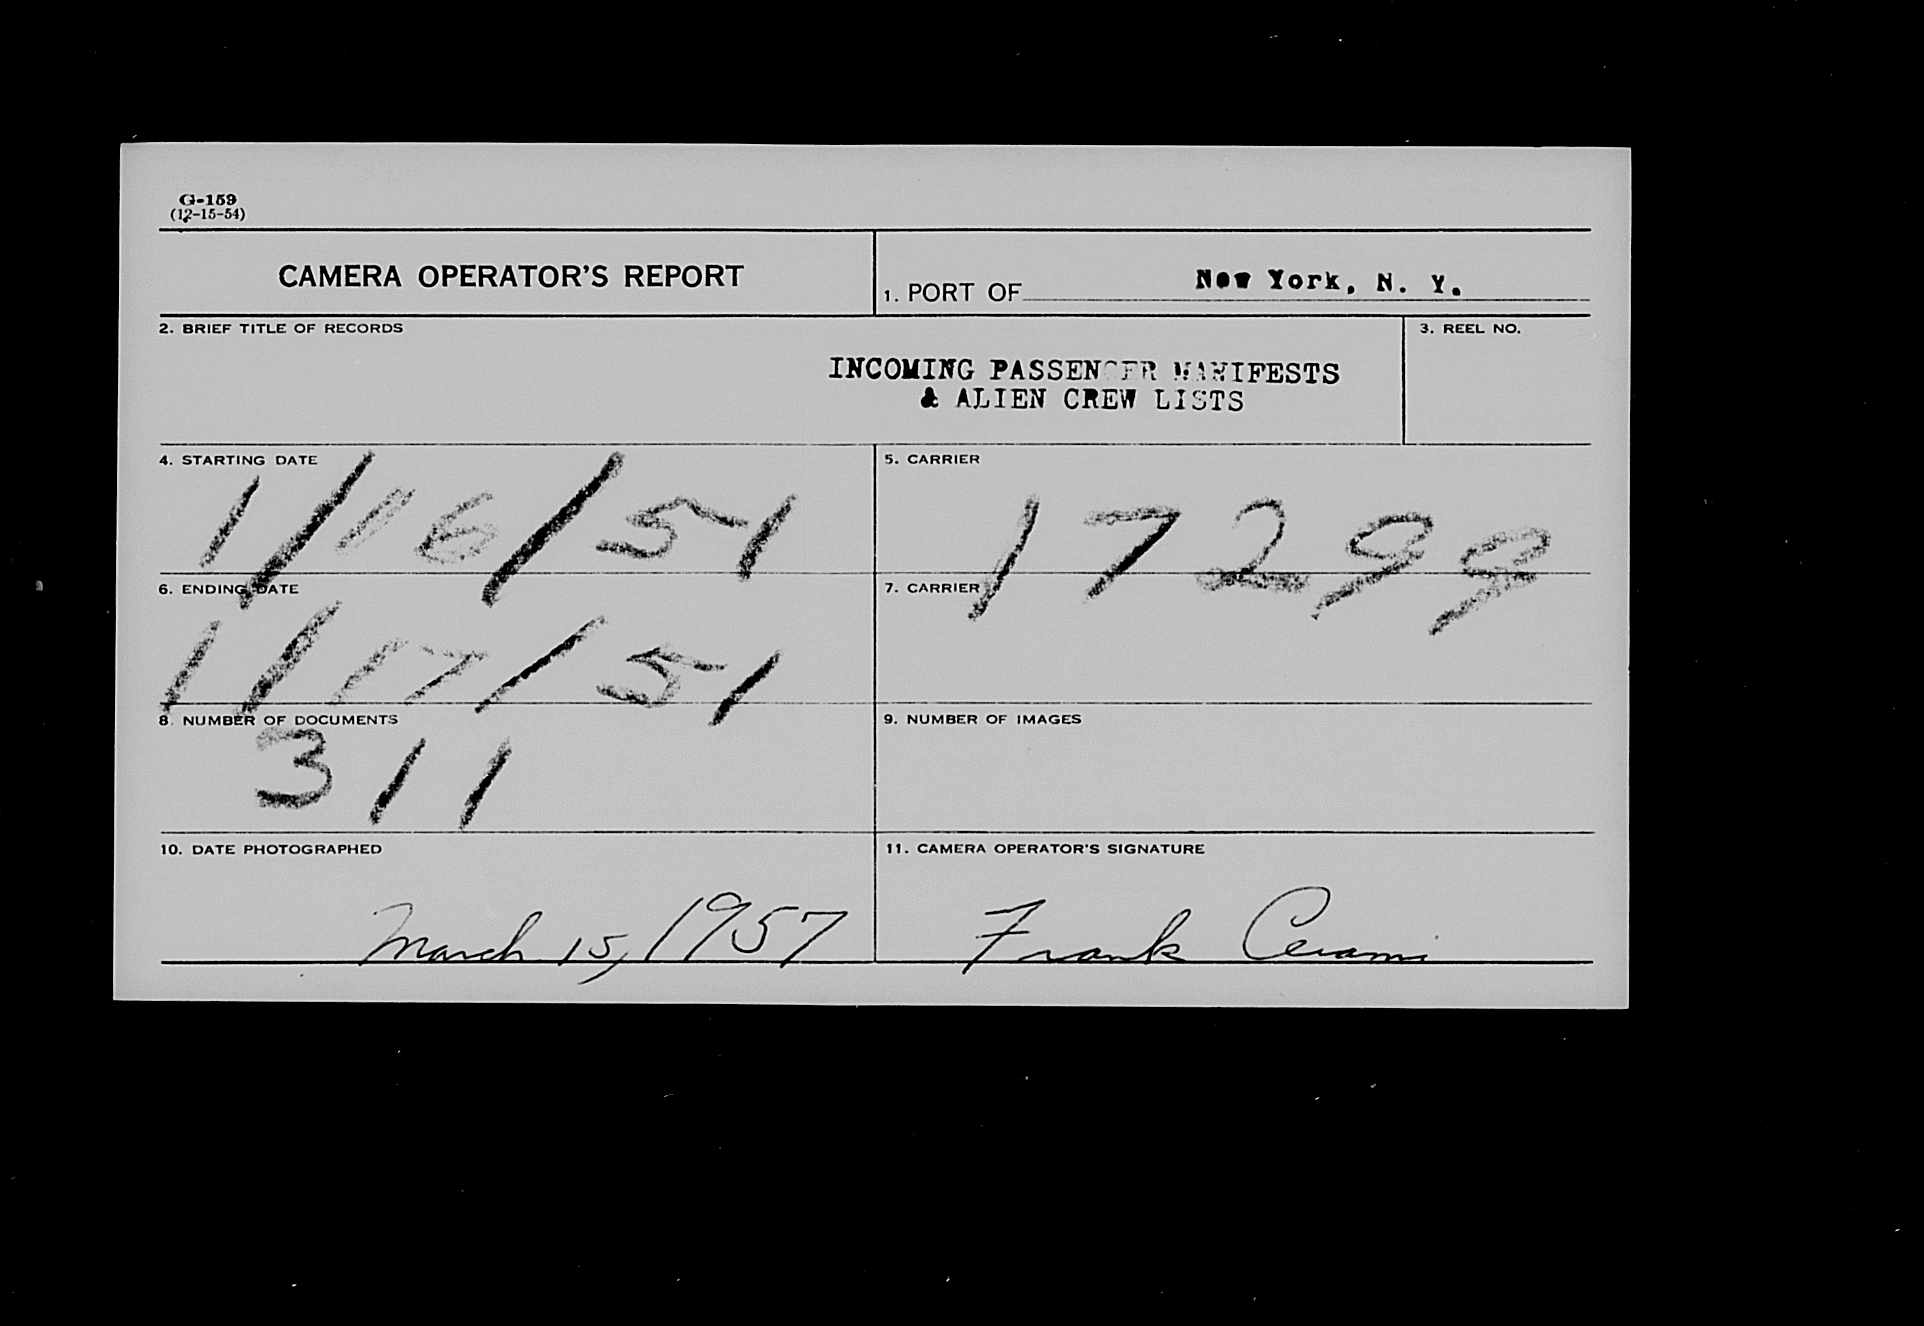 G-159
(12-15-54)
CAMERA OPERATOR'S REPORT
1. PORT OF New York, N. Y.
2. BRIEF TITLE OF RECORDS
3. REEL NO.
INCOMING PASSENGER MANIFESTS
& ALIEN CREW LISTS
4. STARTING DATE
1/16/51
5. CARRIER
17299
6. ENDING DATE
1/17/51
7. CARRIER
8. NUMBER OF DOCUMENTS
311
9. NUMBER OF IMAGES
10. DATE PHOTOGRAPHED
March 15, 1957
11. CAMERA OPERATOR'S SIGNATURE
Frank Cerami